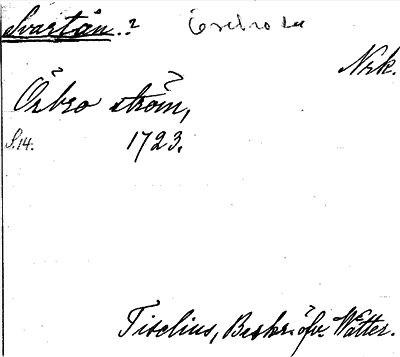 Svartån.? Örebro Lä
Nrk.
Örbro ström,
S.14. 1723.
Tiselius, Beskr. öfv. Wätter.